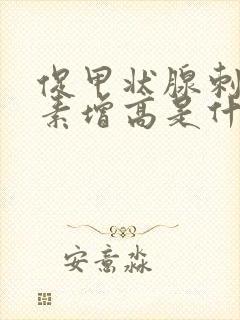 促甲状腺刺
素增高是什
安意淼